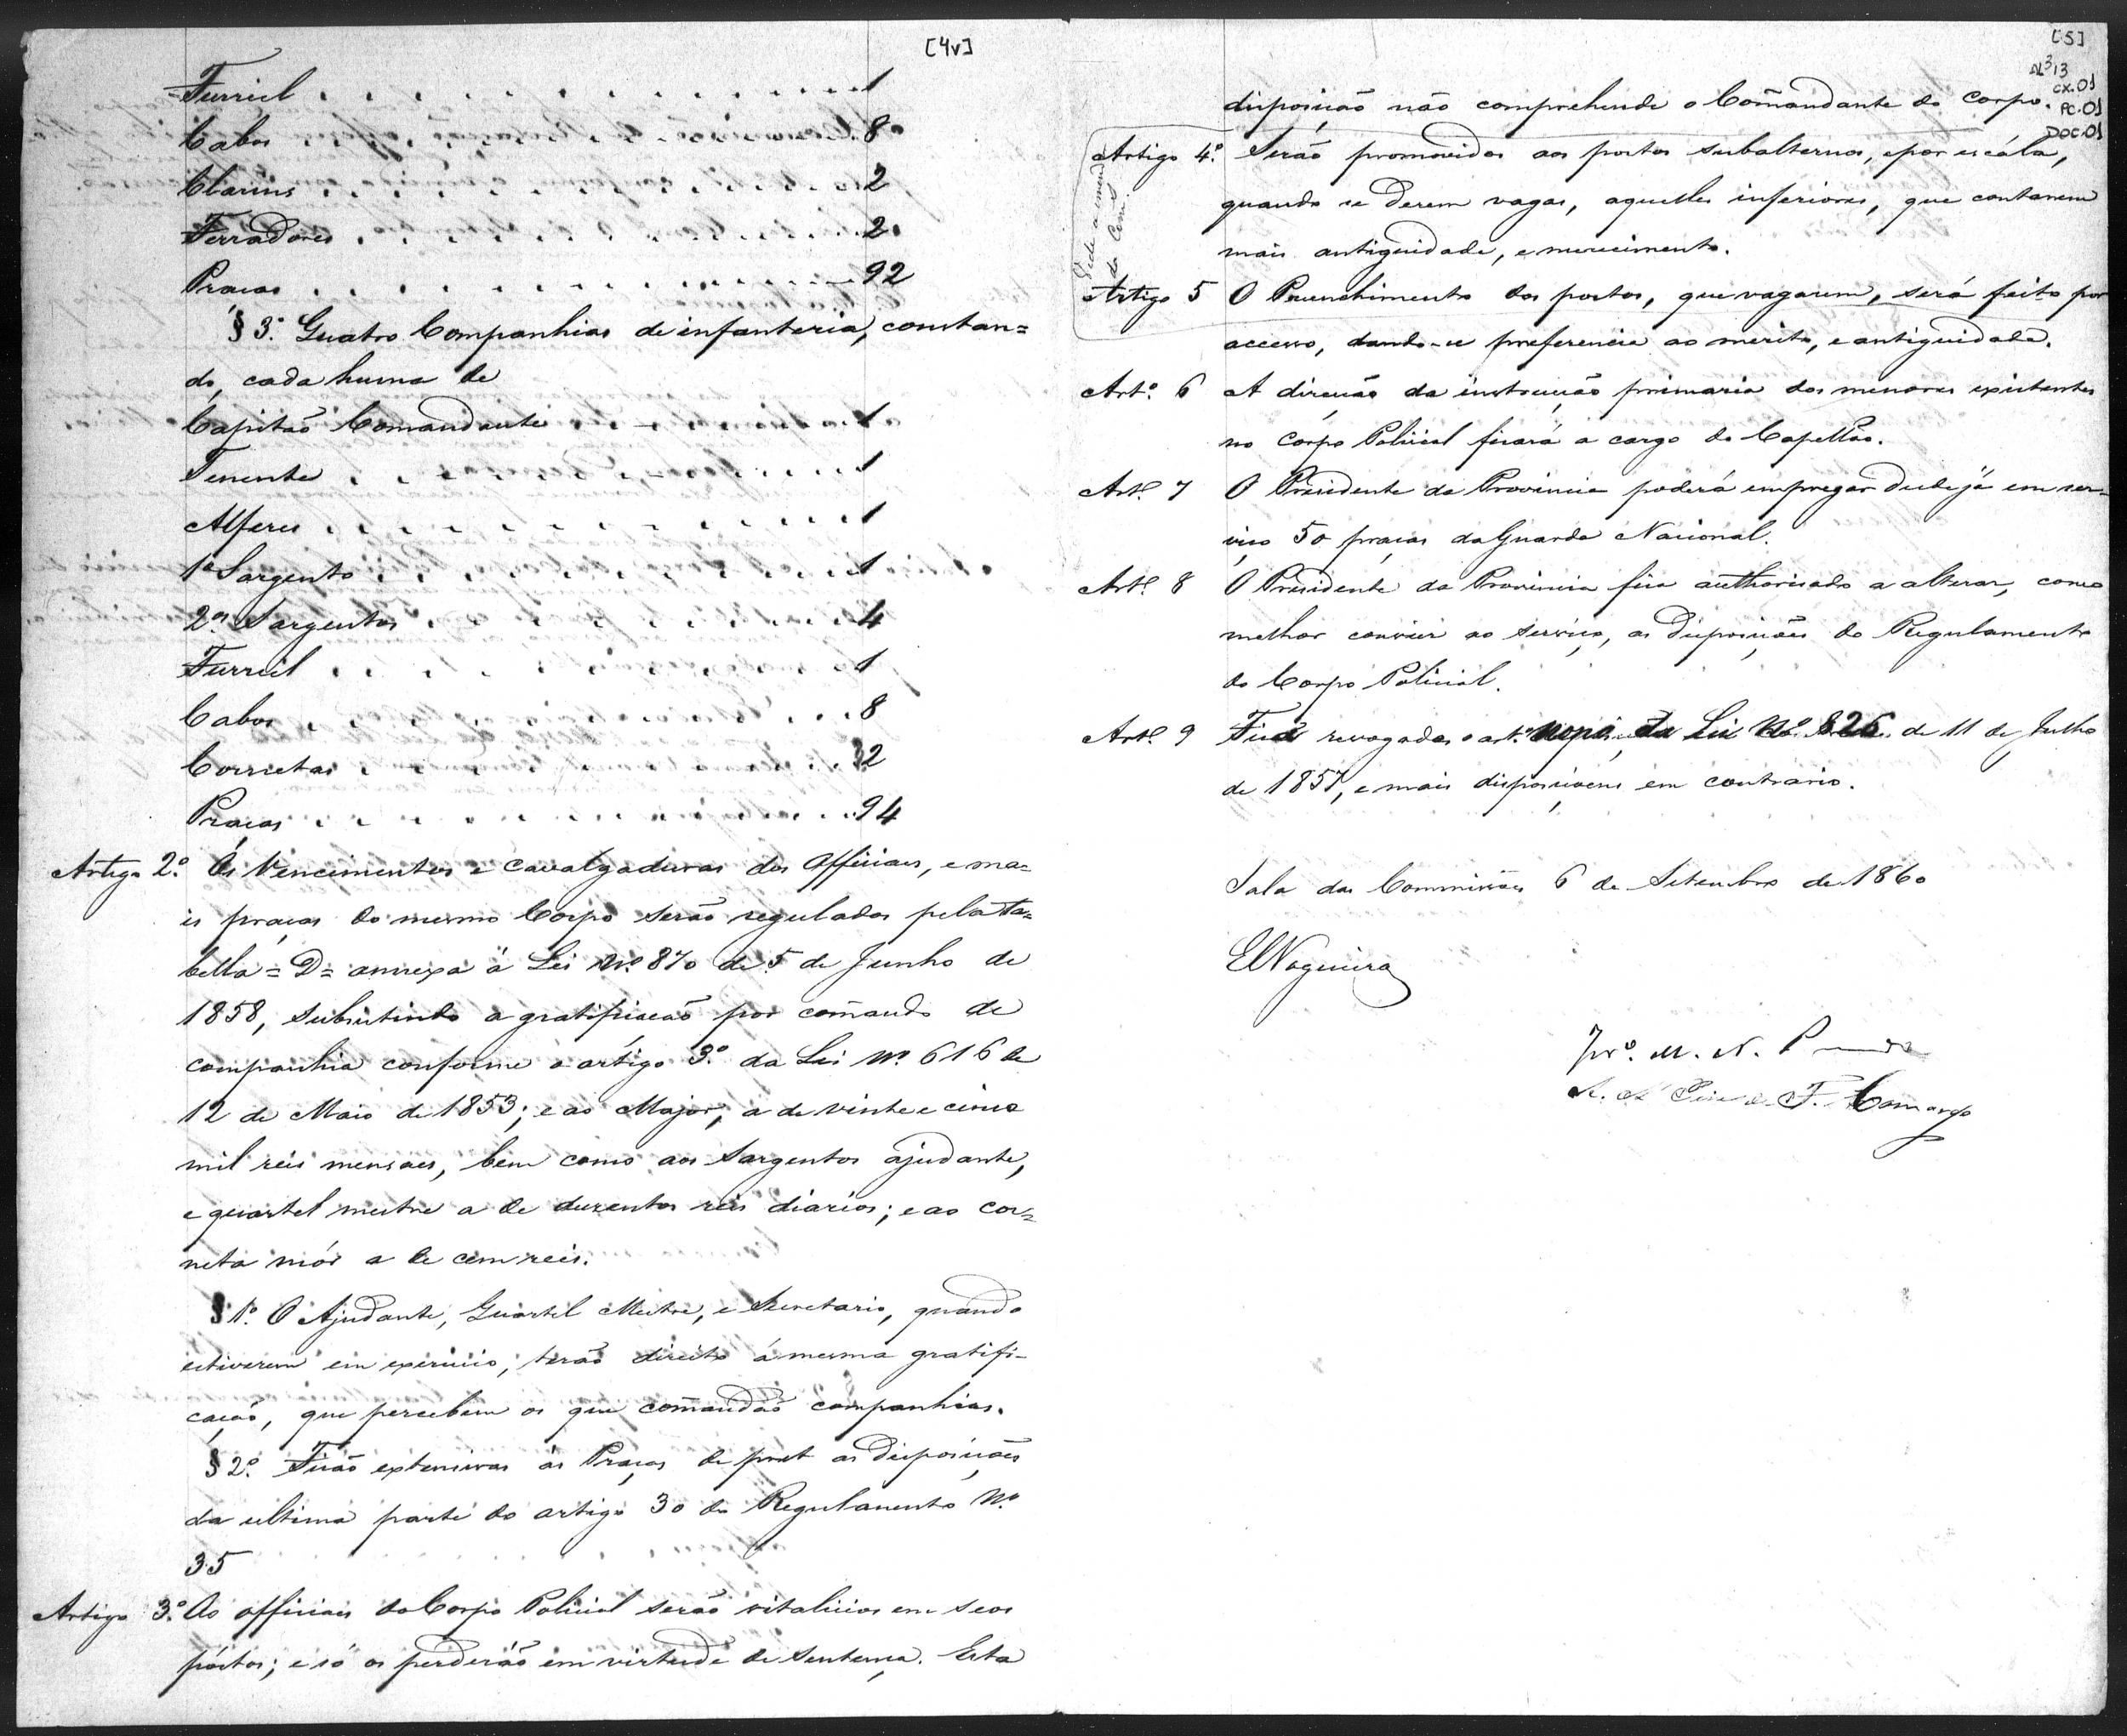 [4v]
Furriel . . . . . . . . . . . . 1
Cabos . . . . . . . . . . . . 8
Clarins . . . . . . . . . . . . 2
Ferradores . . . . . . . . . . . 2
Praças . . . . . . . . . . . . 92
§ 3.º Quatro Companhias de infanteria, constan=
do, cada huma de
Capitaõ Comandante . . . . . . . . 1
Tenente . . . . . . . . . . . . 1
Alferes . . . . . . . . . . . . 1
1º Sargento . . . . . . . . . . . 1
2os Sargentos . . . . . . . . . . 4
Furriel . . . . . . . . . . . . 1
Cabos . . . . . . . . . . . . 8
Cornetas . . . . . . . . . . . 2
Praças . . . . . . . . . . . . 94
Artigo 2.º Os Vencimentos e cavalgaduras dos Officiaes, e ma=
is praças do mesmo Corpo serão regulados pela Ta=
bella = D = annexa á Lei Nº 870 de 5 de Junho de
1858, subsistindo a gratificação por comãndo de
companhia conforme o artigo 3.º da Lei Nº 616 de
12 de Maio de 1853; e ao Major, a de vinte e cinco
mil reis mensaes, bem como aos Sargentos ajudante,
e quartel mestre a de duzentos reis diarios; e ao cor=
neta mór a de cem reis.
§ 1.º O Ajudante, Quartel Mestre, e Secretario, quando
estiverem em exercicio, terão direito á mesma gratifi-
cação, que percebem os que comãndão companhias.
§ 2.º Ficão extensivas ás Praças de pret as disposições
da ultima parte do artigo 30 do Regulamento Nº
35
Artigo 3.º Os officiaes do Corpo Policial serão vitalicios em seos
póstos; e só os perderão em virtude de sentença. Esta
[5]
AL 313
CX.01
PC.01
DOC.01
disposição não comprehende o Comãndante do Corpo.
Vide a emenda
da Com.
Artigo 4.º Serão promovidos aos postos subalternos, e por escála,
quando se derem vagas, aquelles inferiores, que contarem
mais antiguidade, e merecimento.
Artigo 5 O Preenchimento dos postos, que vagarem, será feito por
accesso, dando-se preferencia ao merito, e antiguidade.
Artº. 6 A direcção da instrucção primaria dos menores existentes
no Corpo Policial ficará a cargo do Capellão.
Artº. 7 O Presidente da Provincia poderá empregar desde já em ser-
viço 50 praças da Guarda Nacional.
Artº. 8 O Presidente da Provincia fica authorisado a alterar, como
melhor convier ao serviço, as disposições do Regulamento
do Corpo Policial.
Artº. 9 Fica revogado o art.º nono da Lei Nº 826 de 11 de Julho
de 1857, e mais disposiçoens em contrario.
Sala das Commissões 6 de Setembro de 1860
Nogueira
M. N. P
F. Camargo